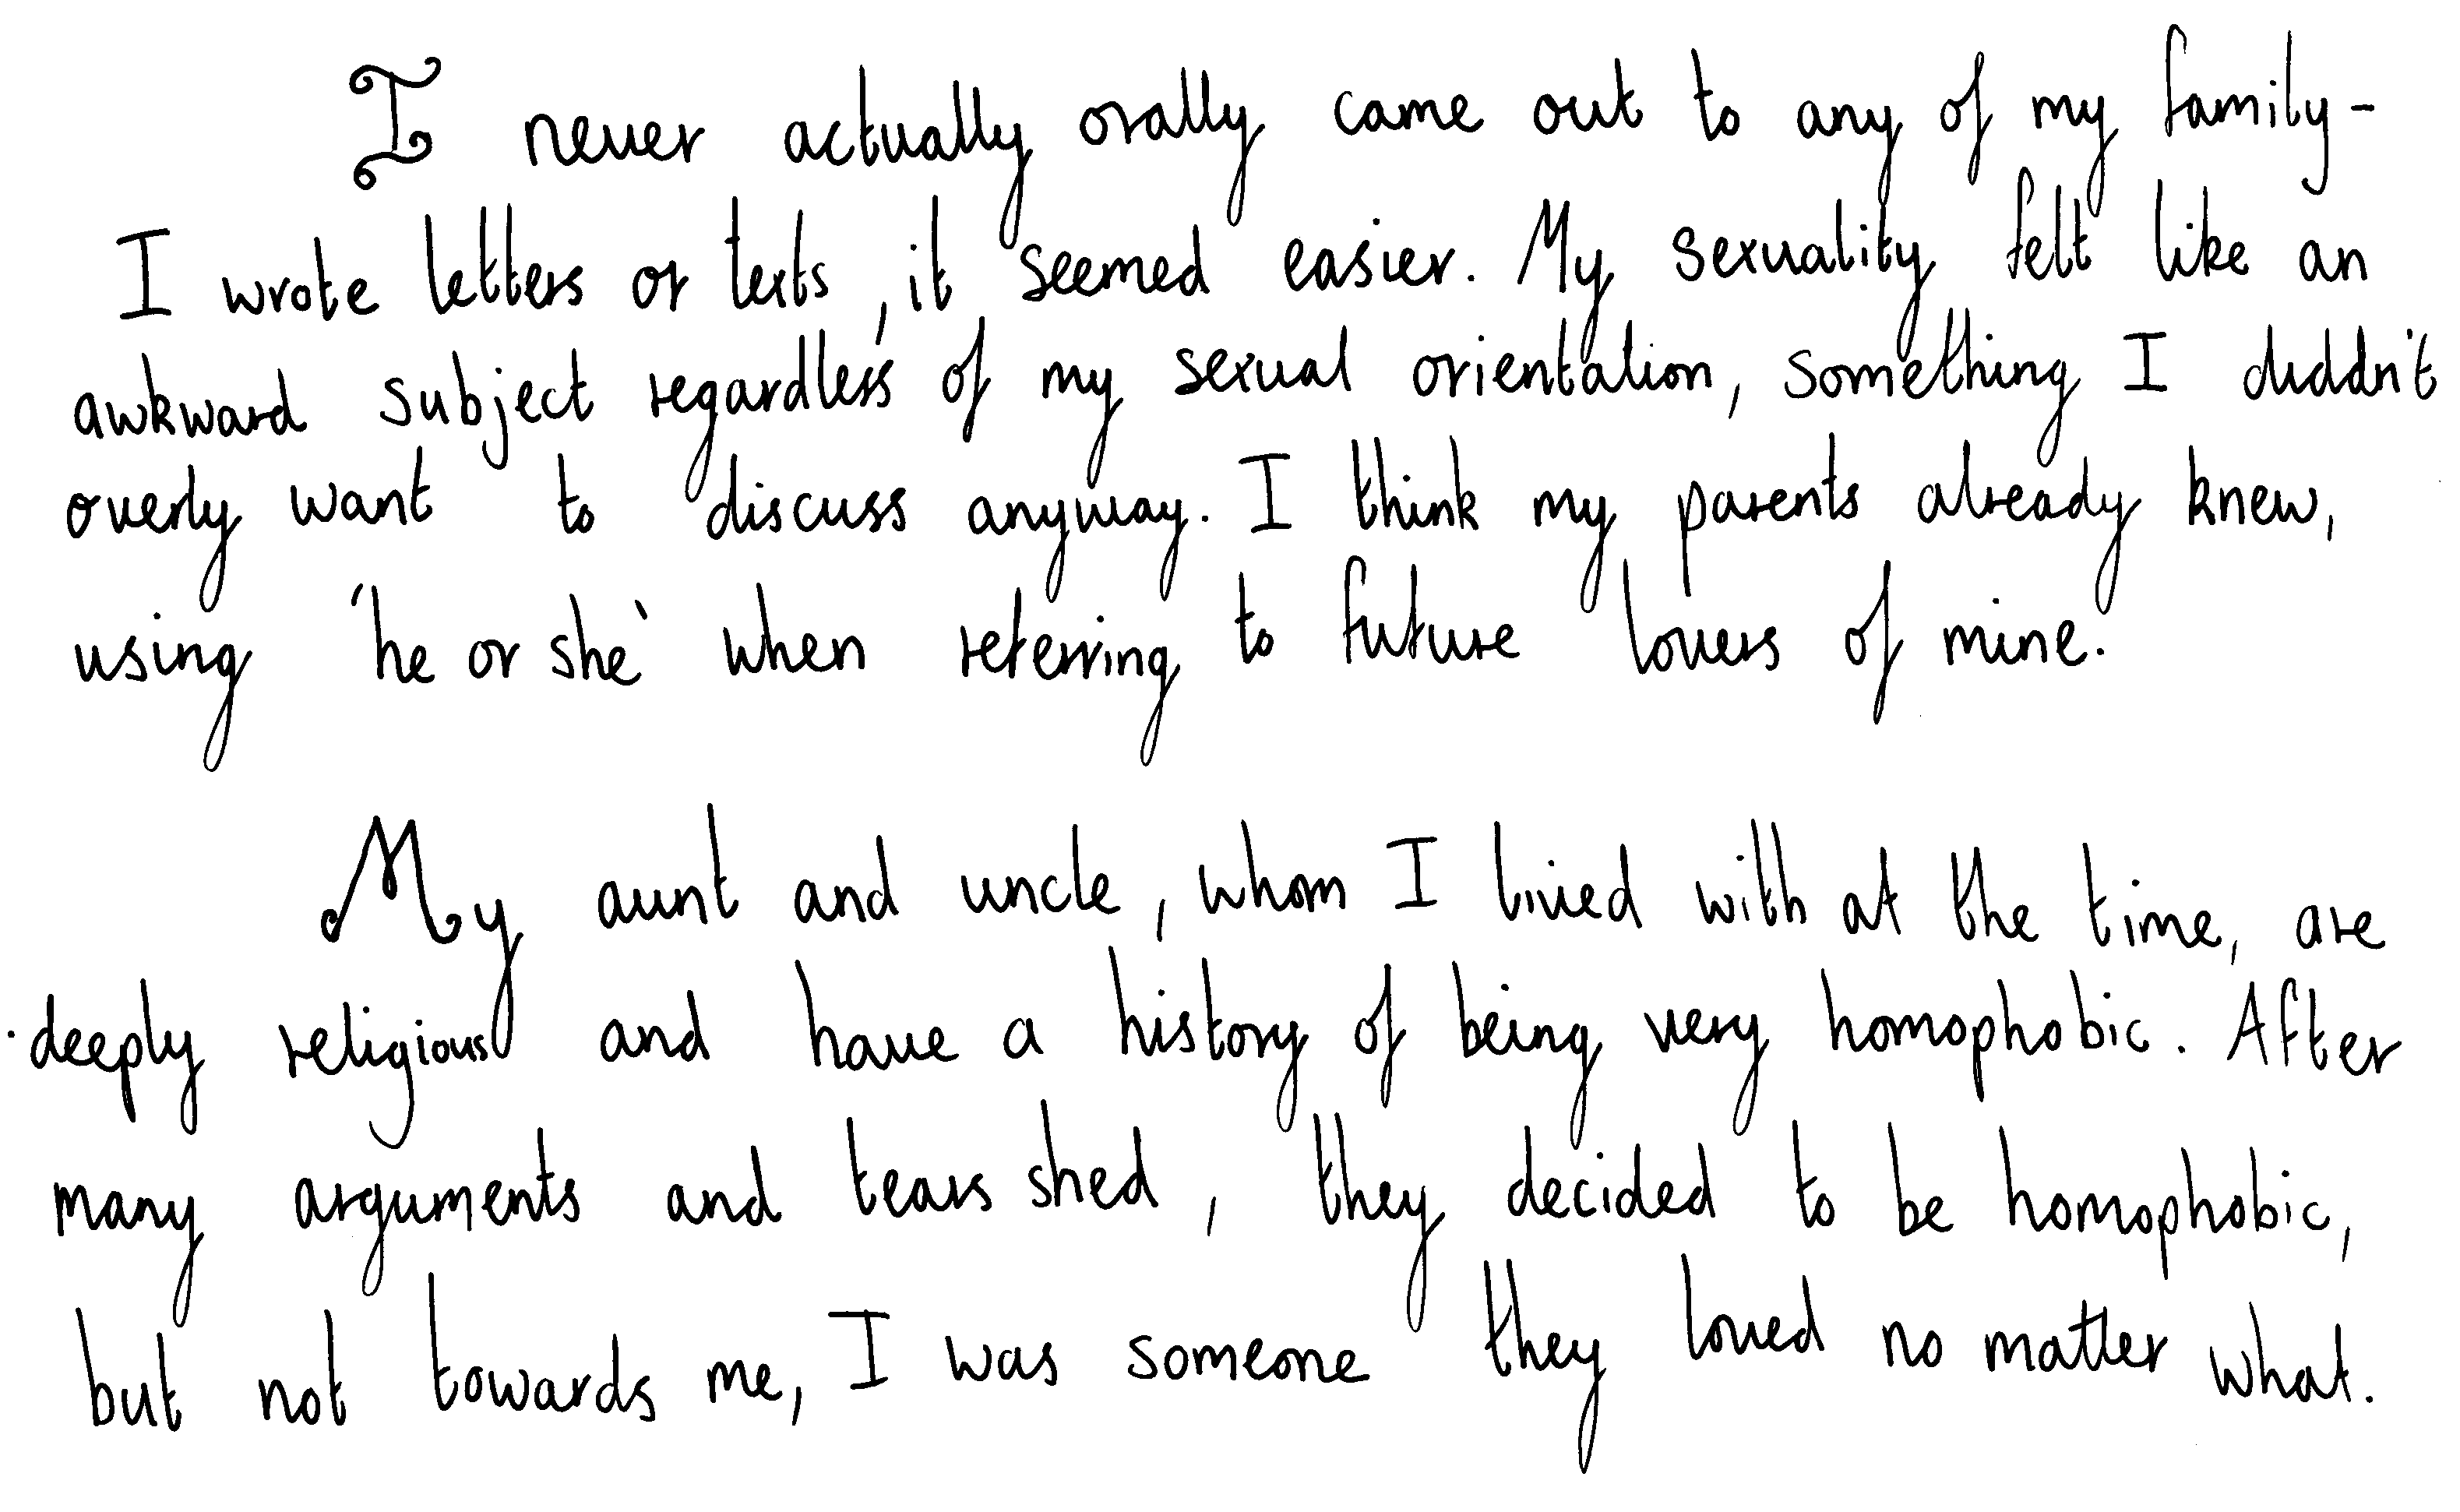 I never actually orally came out to any of my family-
I wrote letters or texts, it seemed easier. My sexuality felt like an
awkward subject regardless of my sexual orientation, something I diddn't
overly want to discuss anyway. I think my parents already knew,
using 'he or she' when referring to future lovers of mine.
My aunt and uncle, whom I lived with at the time, are
deeply religious and have a history of being very homophobic. After
many arguments and tears shed, they decided to be homophobic,
but not towards me, I was someone they loved no matter what.